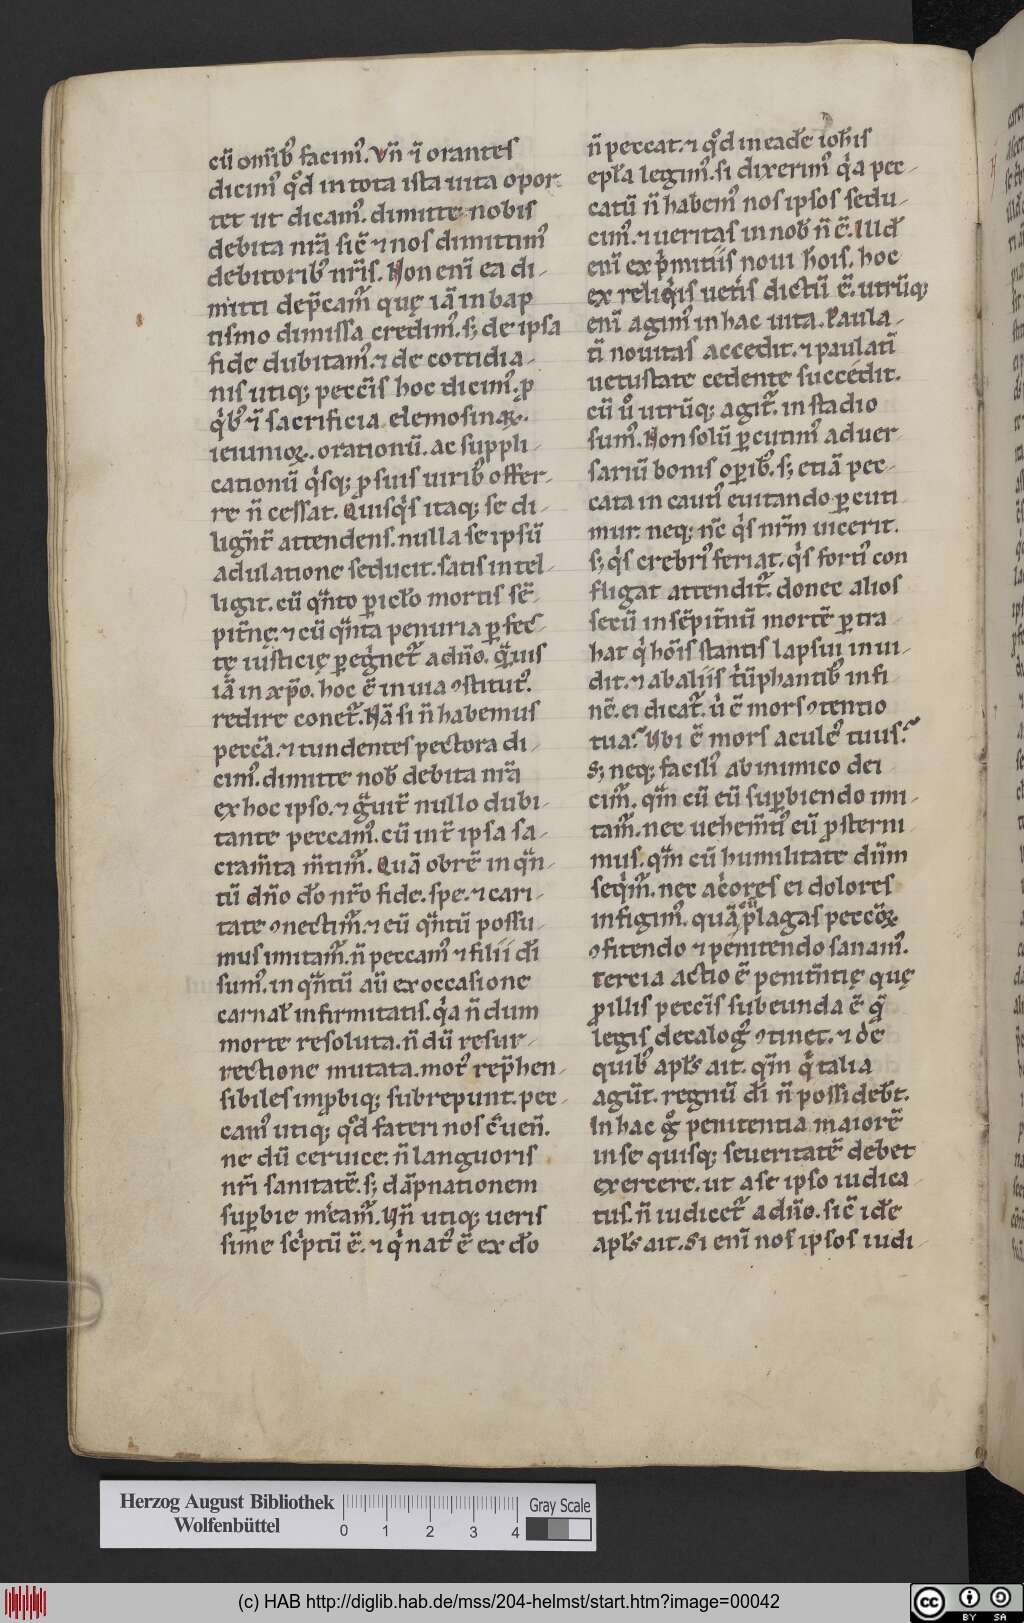 cū om̄ib᷒ facim᷒. Vn̄ ⁊ī orantes
dicim᷒ qͦd in tota ista uita opor
tet ut dicam᷒. dimitte nobis
debita nr̄a sic̄ ⁊ nos dimittim᷒
debitorib᷒ nr̄is. Non eni̅ ea di-
mitti dep̄cam̄ quę iā in bap
tismo dimissa credim᷒. s; de ipsa
fide dubitam᷒. ⁊ de cottidia-
nis utiq; pecc̄is hoc dicim᷒. ꝓ
qͥb᷒ ⁊ī sacrificia elemosinaꝝ.
ieiunioꝝ. orationū. ac suppli-
cationū qͥsq; ꝓ suis uirib᷒ offer-
re n̄ cessat. Quisqͥs itaq; se di-
lign̄t̄ attendens. nulla se ipsū
adulatione seducit. satis intel-
ligit. cū qn̄to ꝑicło mortis sē-
pit̄nę. ⁊ cū qn̄ta penuria ꝑfec-
tę iusticię ꝑegͥnet᷒ a dn̄o. qͣuis
iā in xp̄o. hoc ē in uia ꝯstitut᷒.
redire conet᷒. Nā si n̄ habemus
peccā. ⁊ tundentes pectora di-
cim᷒. dimitte nob̄ debita nr̄a
ex hoc ipso. ⁊ gͣuit̄ nullo dubi-
tante peccam᷒. cū int̄ ipsa sa-
cram̄ta m̄tim᷒. Quā obrē in qn̄-
tū dn̄o do̅ nr̄o fide. spe. ⁊ cari-
tate ꝯnectim᷒. ⁊ eū qn̄tū possu-
mus imitam᷒. n̄ peccam᷒ ⁊ filii dī
sum᷒. in qn̄tū aū ex occasione
carnał infirmitatis. qͥa n̄dum
morte resoluta. n̄dū resur-
rectione mutata. mot᷒ rep̄hen-
sibiles imꝓbiq; subrepunt. pec-
cam᷒ utiq; qͦd fateri nos ꝯuen̄.
ne dū ceruice. n̄ languoris
nr̄i sanitatē. s; dāpnationem
suꝑbie mͤeam᷒. Vn̄ utiq; ueris
sime scͥptū ē. ⁊ qͥ nat᷒ ē ex do̅
n̄ peccat. ⁊ qͦd in eadē ioh̄is
epła legim᷒. si dixerim᷒ qͥa pec-
catū n̄ habem᷒ nos ipsos sedu-
cim᷒. ⁊ ueritas in nob̄ n̄ ē. Illđ
eni̅ ex pͥmitiis noui hōis. hoc
ex reliqͥis uetīs dictū ē. utrūq;
eni̅ agim᷒ in hac uita. Paula-
tī nouitas accedit. ⁊ paulatī
uetustate cedente succedit.
cū uͦ utrūq; agit᷒. in stadio
sum᷒. Non solū ꝑcutim᷒ aduer-
sariū bonis oꝑib᷒. s; etiā pec-
cata in caut᷒ euitando ꝑcuti
mur. neq; nc̄ qͥs nr̄m uicerit.
s; qͥs crebri᷒ feriat. qͥs forti᷒ con
fligat attendit᷒. donec alios
secū in sēpit̄nū mortē ꝑtra-
hat qͥ hōis stantis lapsui inui-
dit. ⁊ ab aliis tͥūphantib᷒ in fi
nē. ei dicat᷒. uͥ ē mors ꝯtentio
tua? Vbi ē mors acule᷒ tuus?
S; neq; facili᷒ ab inimico dei
cim᷒. qm̄ cū eū suꝑbiendo imi-
tam᷒. nec uehem̄ti᷒ eū ꝓsterni-
mus. qm̄ cū humilitate dūm
seqͥm᷒. nec acͥores ei dolores
infigim᷒. quā cū plagas peccōꝝ
ꝯfitendo ⁊ penitendo sanam᷒.
tercia actio ē penitn̄tię quę
ꝓ illis pecc̄is subeunda ē qͣ
legis decalog᷒ ꝯtinet. ⁊ dͤ
quib᷒ apłs ait. qm̄ qͥ talia
agūt. regnū dī n̄ possidebt̄.
In hac gͦ penitentia maiorē
in se quisq; seueritatē debet
exercere. ut a se ipso iudica-
tus. n̄ iudicet᷒ a dn̄o. sic̄ idē
apłs ait. Si eni̅ nos ipsos iudi-
Herzog August Bibliothek
Wolfenbüttel
0 1 2 3 4
Gray Scale
(c) HAB http://diglib.hab.de/mss/204-helmst/start.htm?image=00042
cc BY SA